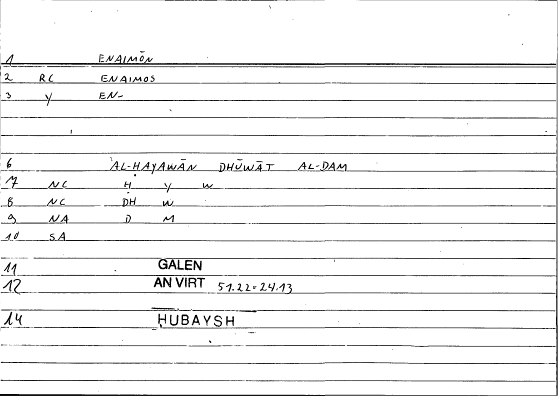 1 ENAIMŌN
2 RC ENAIMOS
3 Y EN-
6 AL-ḤAYAWĀN DHŪWĀT AL-DAM
7 NC Ḥ Y W
8 NC DH W
9 NA D M
10 SA
11 GALEN
12 AN VIRT 51.22=24.13
14 HUBAYSH